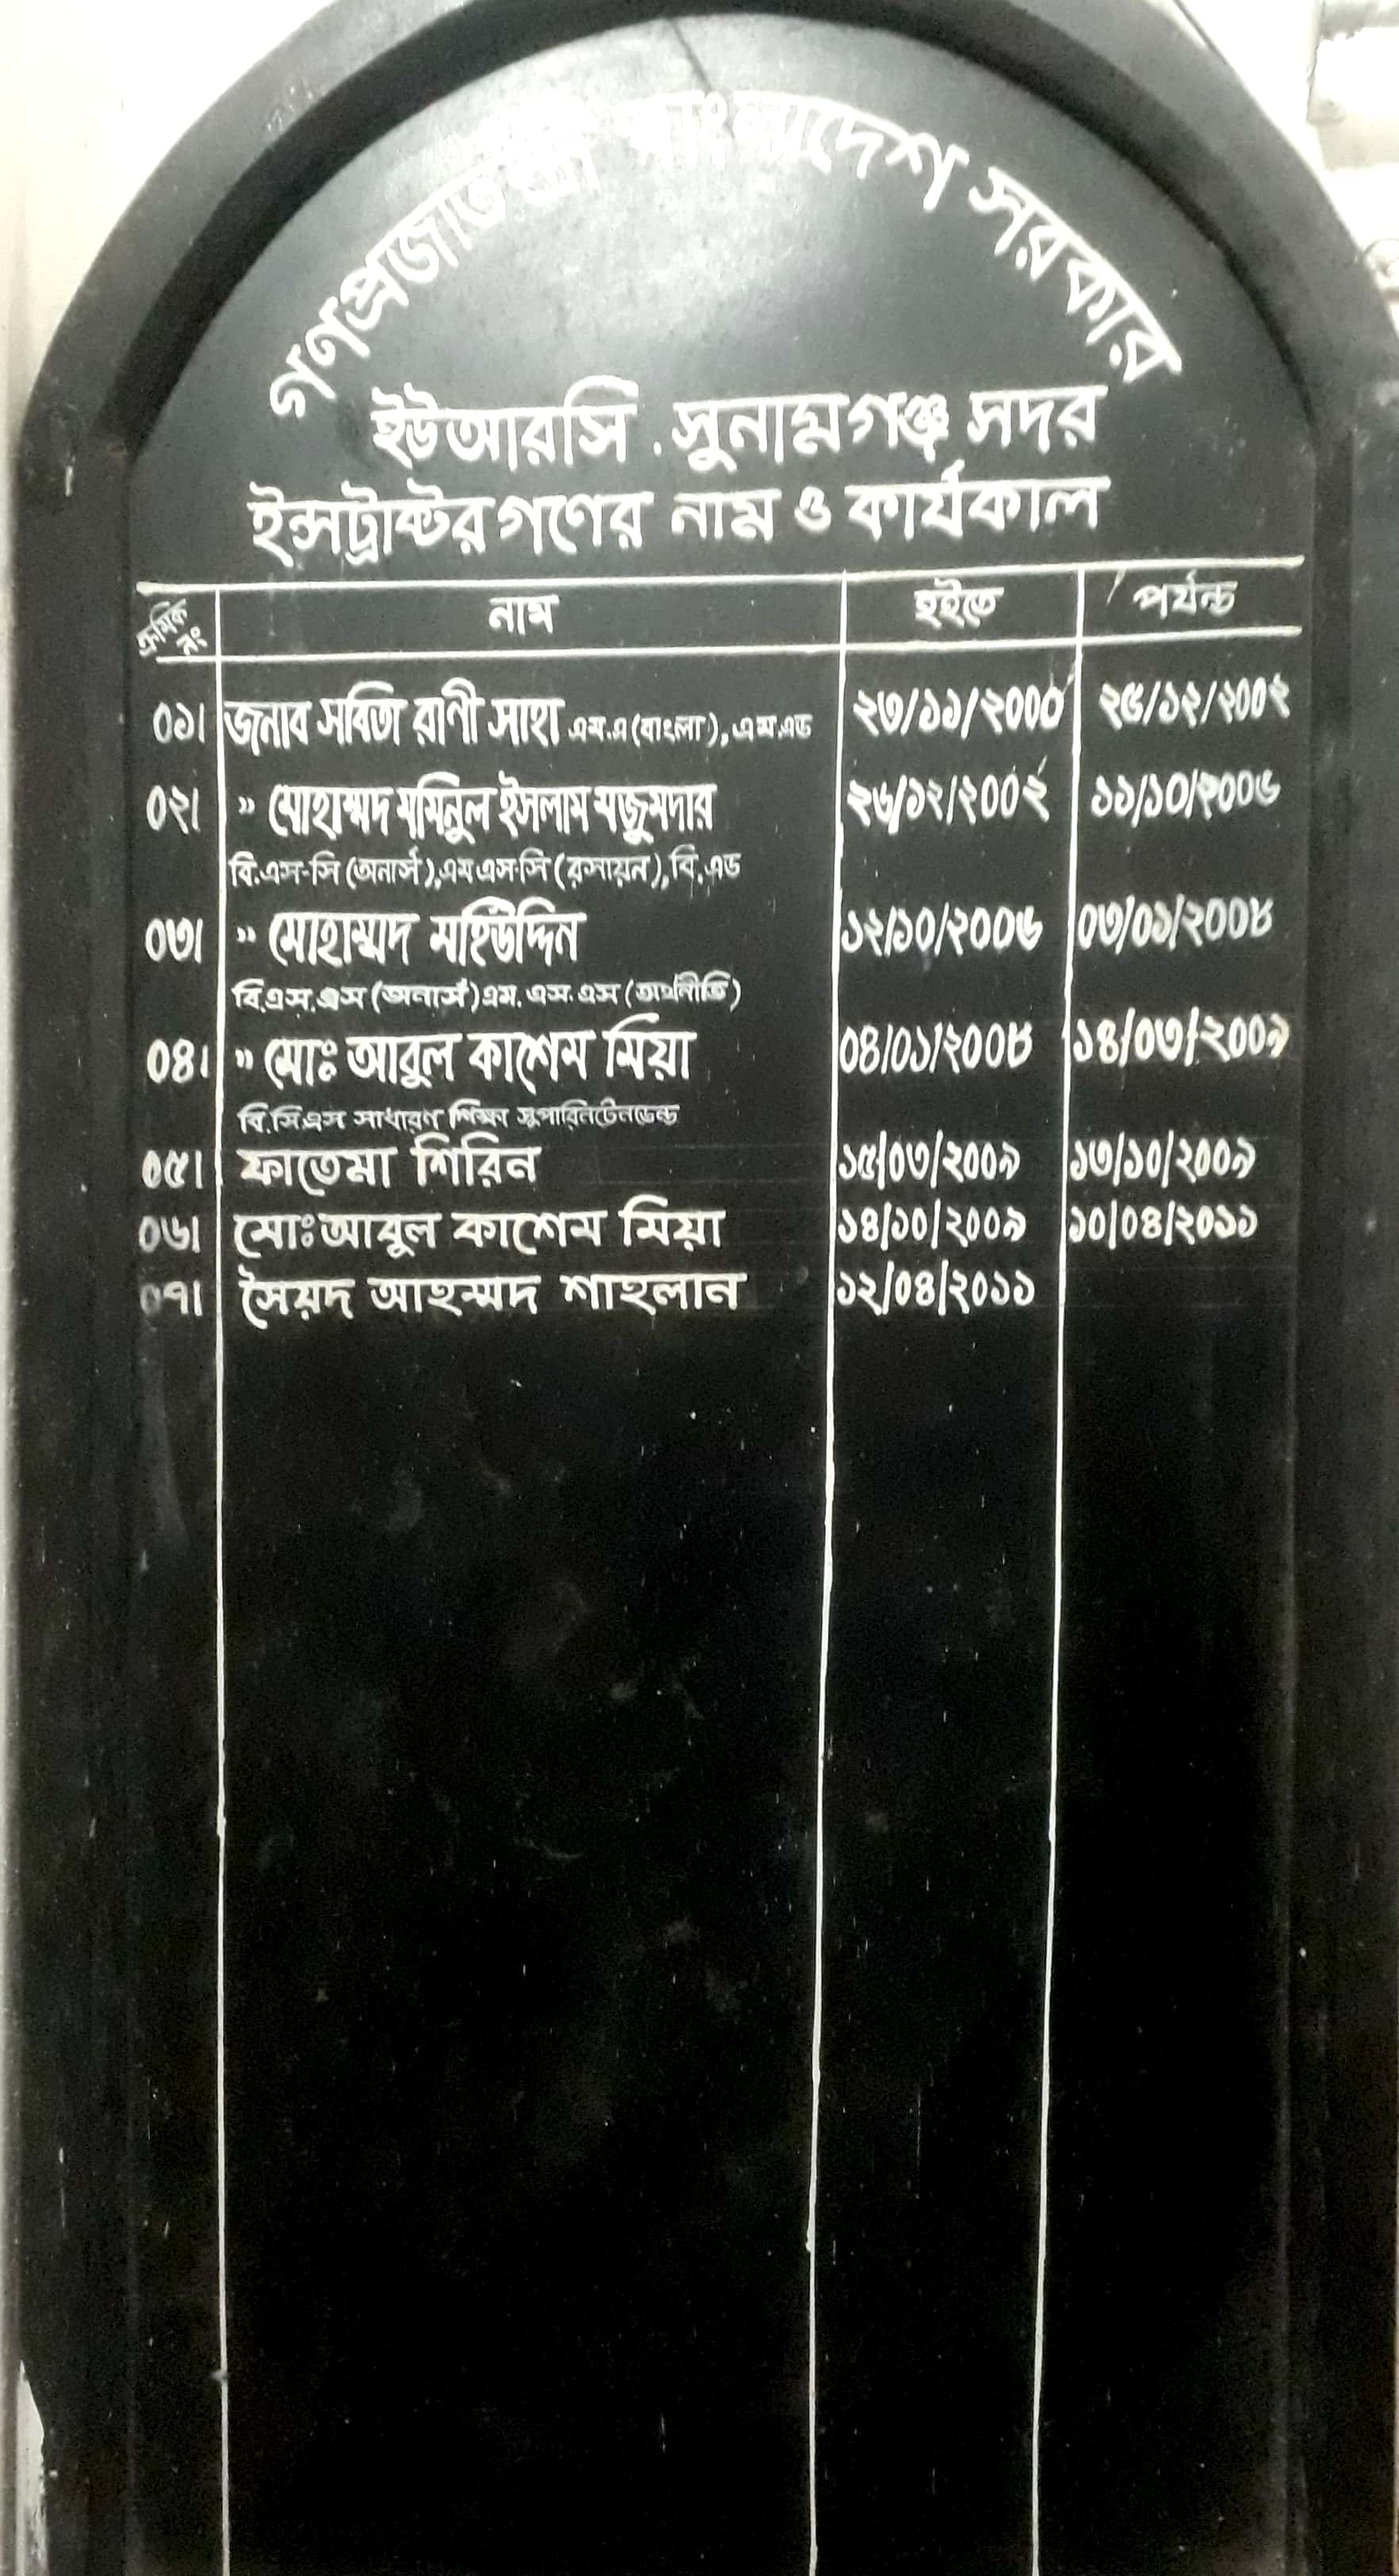 গণপ্রজাতন্ত্রী বাংলাদেশ সরকার
ইউআরসি . সুনামগঞ্জ সদর
ইন্সট্রাক্টরগণের নাম ও কার্যকাল
ক্রমিক নং নাম হইতে পর্যন্ত
০১। জনাব সবিতা রাণী সাহা এম.এ (বাংলা), এম.এড ২৩/১১/২০০০ ২৫/১২/২০০২
০২। " মোহাম্মদ মমিনুল ইসলাম মজুমদার ২৬/১২/২০০২ ১১/১০/২০০৬
বি.এস-সি (অনার্স), এম এস-সি (রসায়ন), বি.এড
০৩। " মোহাম্মদ মহিউদ্দিন ১২/১০/২০০৬ ০৩/০১/২০০৮
বি.এস.এস (অনার্স) এম. এস.এস (অর্থনীতি)
০৪। " মোঃ আবুল কাশেম মিয়া ০৪/০১/২০০৮ ১৪/০৩/২০০৯
বি.সি.এস সাধারণ শিক্ষা সুপারিনটেনডেন্ড
০৫। ফাতেমা শিরিন ১৫/০৩/২০০৯ ১৩/১০/২০০৯
০৬। মোঃ আবুল কাশেম মিয়া ১৪/১০/২০০৯ ১০/০৪/২০১১
০৭। সৈয়দ আহম্মদ শাহলান ১২/০৪/২০১১